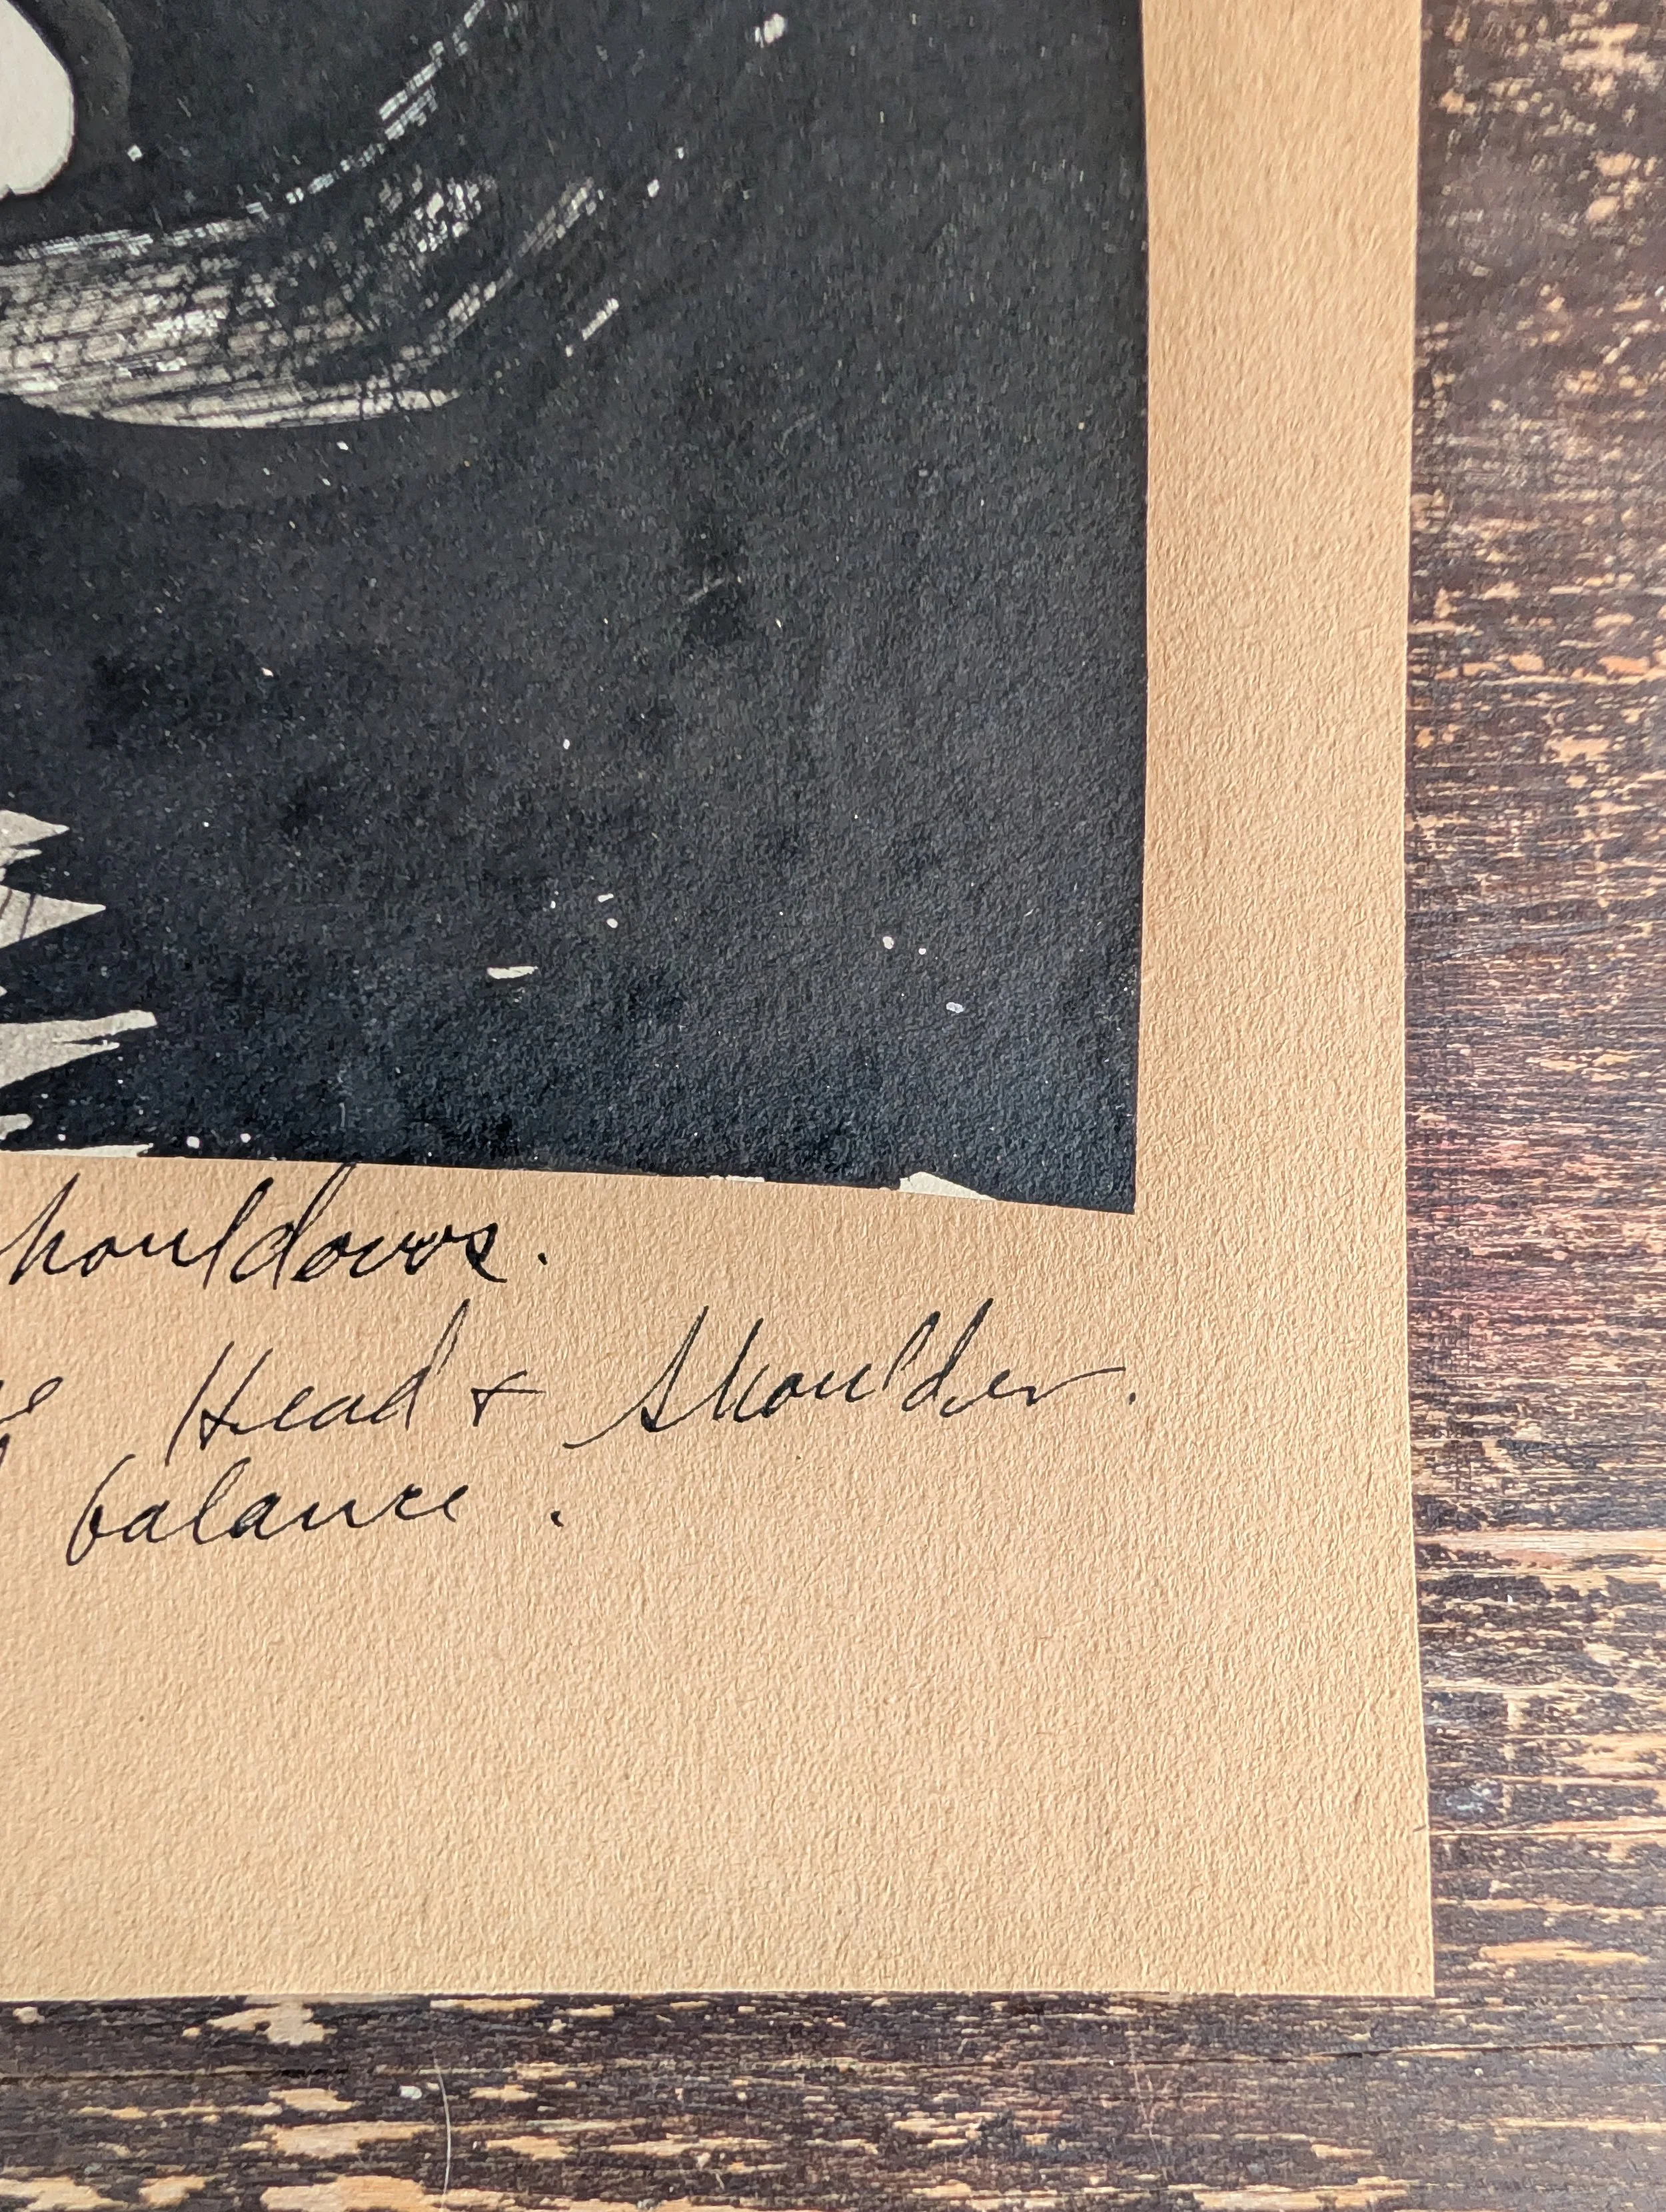 houldows.
Head + Shoulder.
balance.